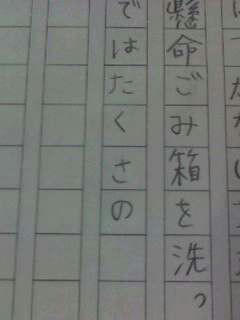 懸命ごみ箱を洗っ
ではたくさの